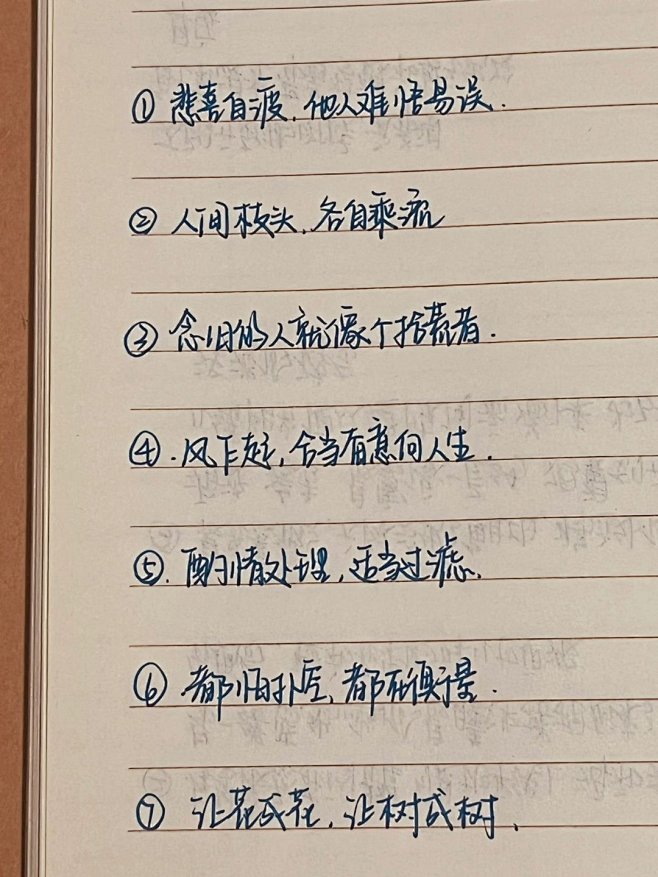 ① 悲喜自渡,他人难悟易误.
② 人间枝头,各自乘流
③ 念旧的人就像个拾荒者.
④.风乍起,合当有意向人生.
⑤.酌情处理,适当过滤.
⑥ 都怕扑空,都在衡量.
⑦ 让花成花,让树成树.